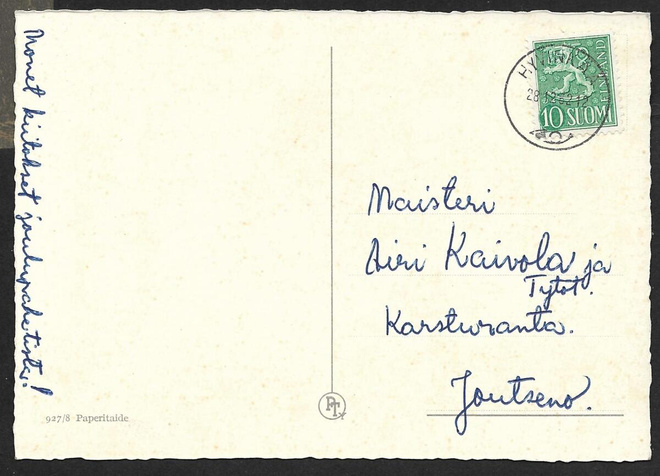 Monet kiitokset joulupaketista!
Maisteri
Airi Kaivola ja
Tytöt.
Karsturanta.
Joutseno.
927/8 Paperitaide
PT
HYVINKÄÄ
28.12.62.13
10 SUOMI
FINLAND